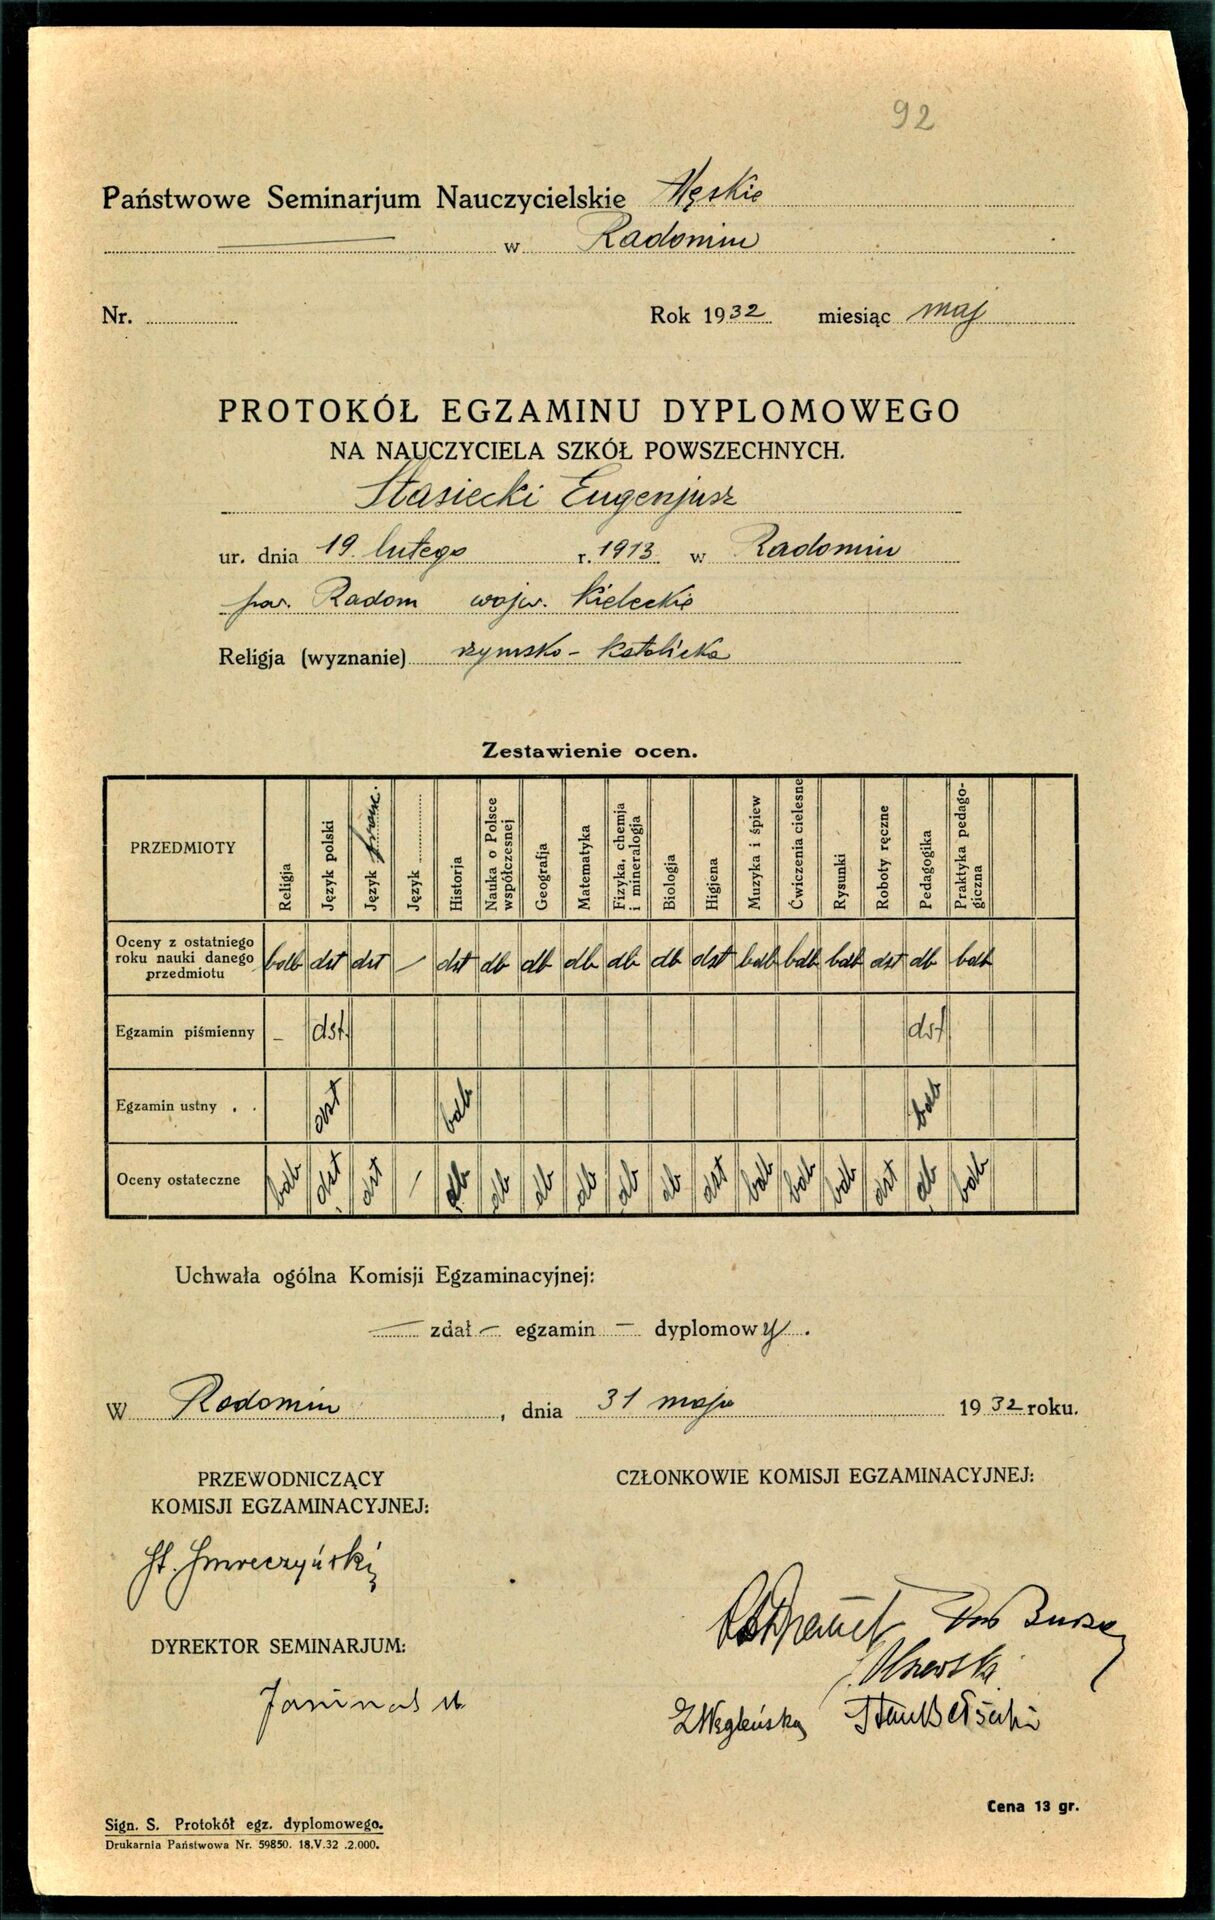 92
Państwowe Seminarjum Nauczycielskie Męskie
w Radomiu
Nr. Rok 1932 miesiąc maj
PROTOKÓŁ EGZAMINU DYPLOMOWEGO
NA NAUCZYCIELA SZKÓŁ POWSZECHNYCH.
Stasiecki Eugenjusz
ur. dnia 19. lutego r. 1913 w Radomiu
pow. Radom wojw. Kieleckie
Religja (wyznanie) rzymsko-katolicka
Zestawienie ocen.
PRZEDMIOTY Religja Język polski Język franc. Język Historja Nauka o Polsce współczesnej Geografja Matematyka Fizyka, chemja i mineralogja Biologja Higjena Muzyka i śpiew Ćwiczenia cielesne Rysunki Roboty ręczne Pedagogika Praktyka pedagogiczna
Oceny z ostatniego roku nauki danego przedmiotu bdb dst dst — dst db db db db db dst bdb bdb bdb dst db bdb
Egzamin piśmienny - dst. dst.
Egzamin ustny . . dst bdb bdb
Oceny ostateczne bdb dst dst — db db db db db db dst bdb bdb bdb dst db bdb
Uchwała ogólna Komisji Egzaminacyjnej:
— zdał — egzamin — dyplomowy.
W Radomiu, dnia 31 maja 1932 roku.
PRZEWODNICZĄCY
KOMISJI EGZAMINACYJNEJ:
CZŁONKOWIE KOMISJI EGZAMINACYJNEJ:
DYREKTOR SEMINARJUM:
Cena 13 gr.
Sign. S. Protokół egz. dyplomowego.
Drukarnia Państwowa Nr. 59850. 18.V.32 .2.000.